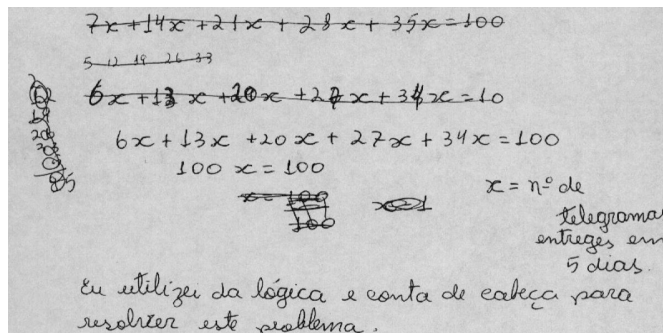 7x+14x+21x+28x+35x=100
5 12 19 26 33
6x+13x+20x+27x+34x=10
6x+13x+20x+27x+34x=100
100x=100
x= 100
100
x=1
x = nº de
telegramas
entreges em
5 dias.
Eu utilizei da lógica e conta de cabeça para
resolver este problema.